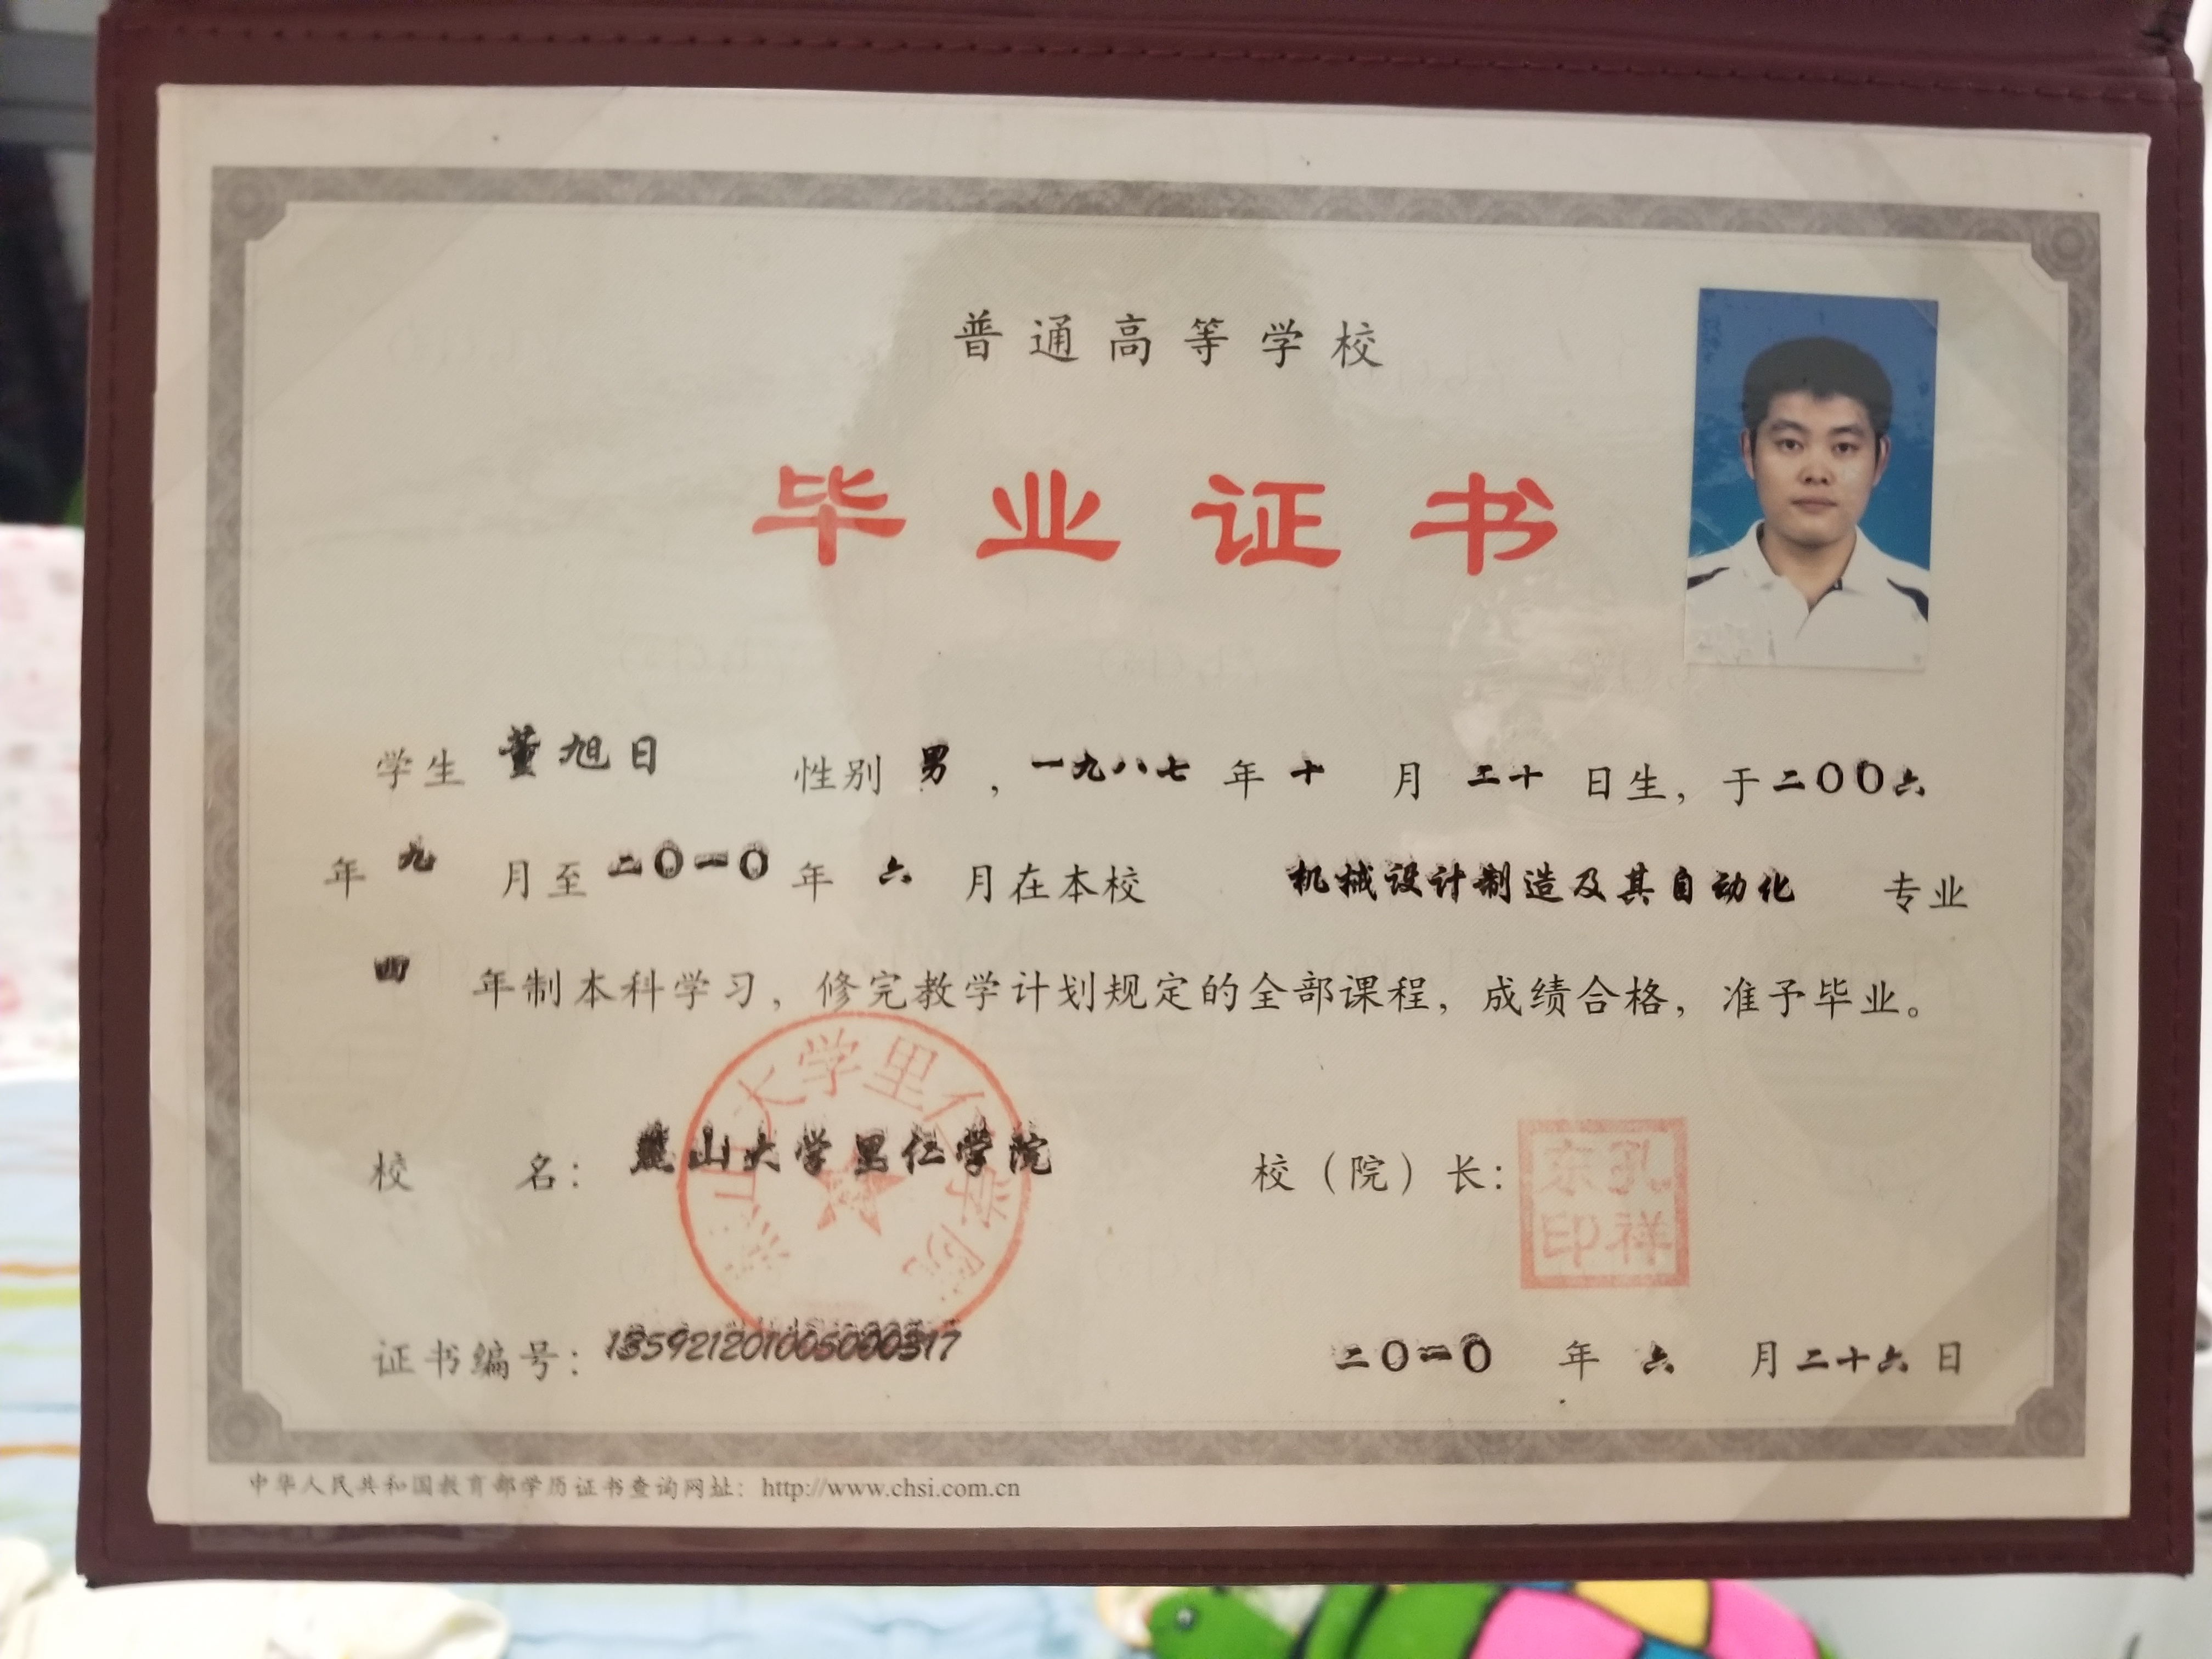 普通高等学校
毕业证书
学生 董旭日 性别 男，一九八七 年 十 月 二十 日生，于二〇〇六
年 九 月至 二〇一〇 年 六 月在本校 机械设计制造及其自动化 专业
四 年制本科学习，修完教学计划规定的全部课程，成绩合格，准予毕业。
校 名：燕山大学里仁学院 校（院）长：
燕山大学里仁学院
孔祥东印
证书编号：135921201005000317 二〇一〇 年 六 月二十六日
中华人民共和国教育部学历证书查询网址：http://www.chsi.com.cn